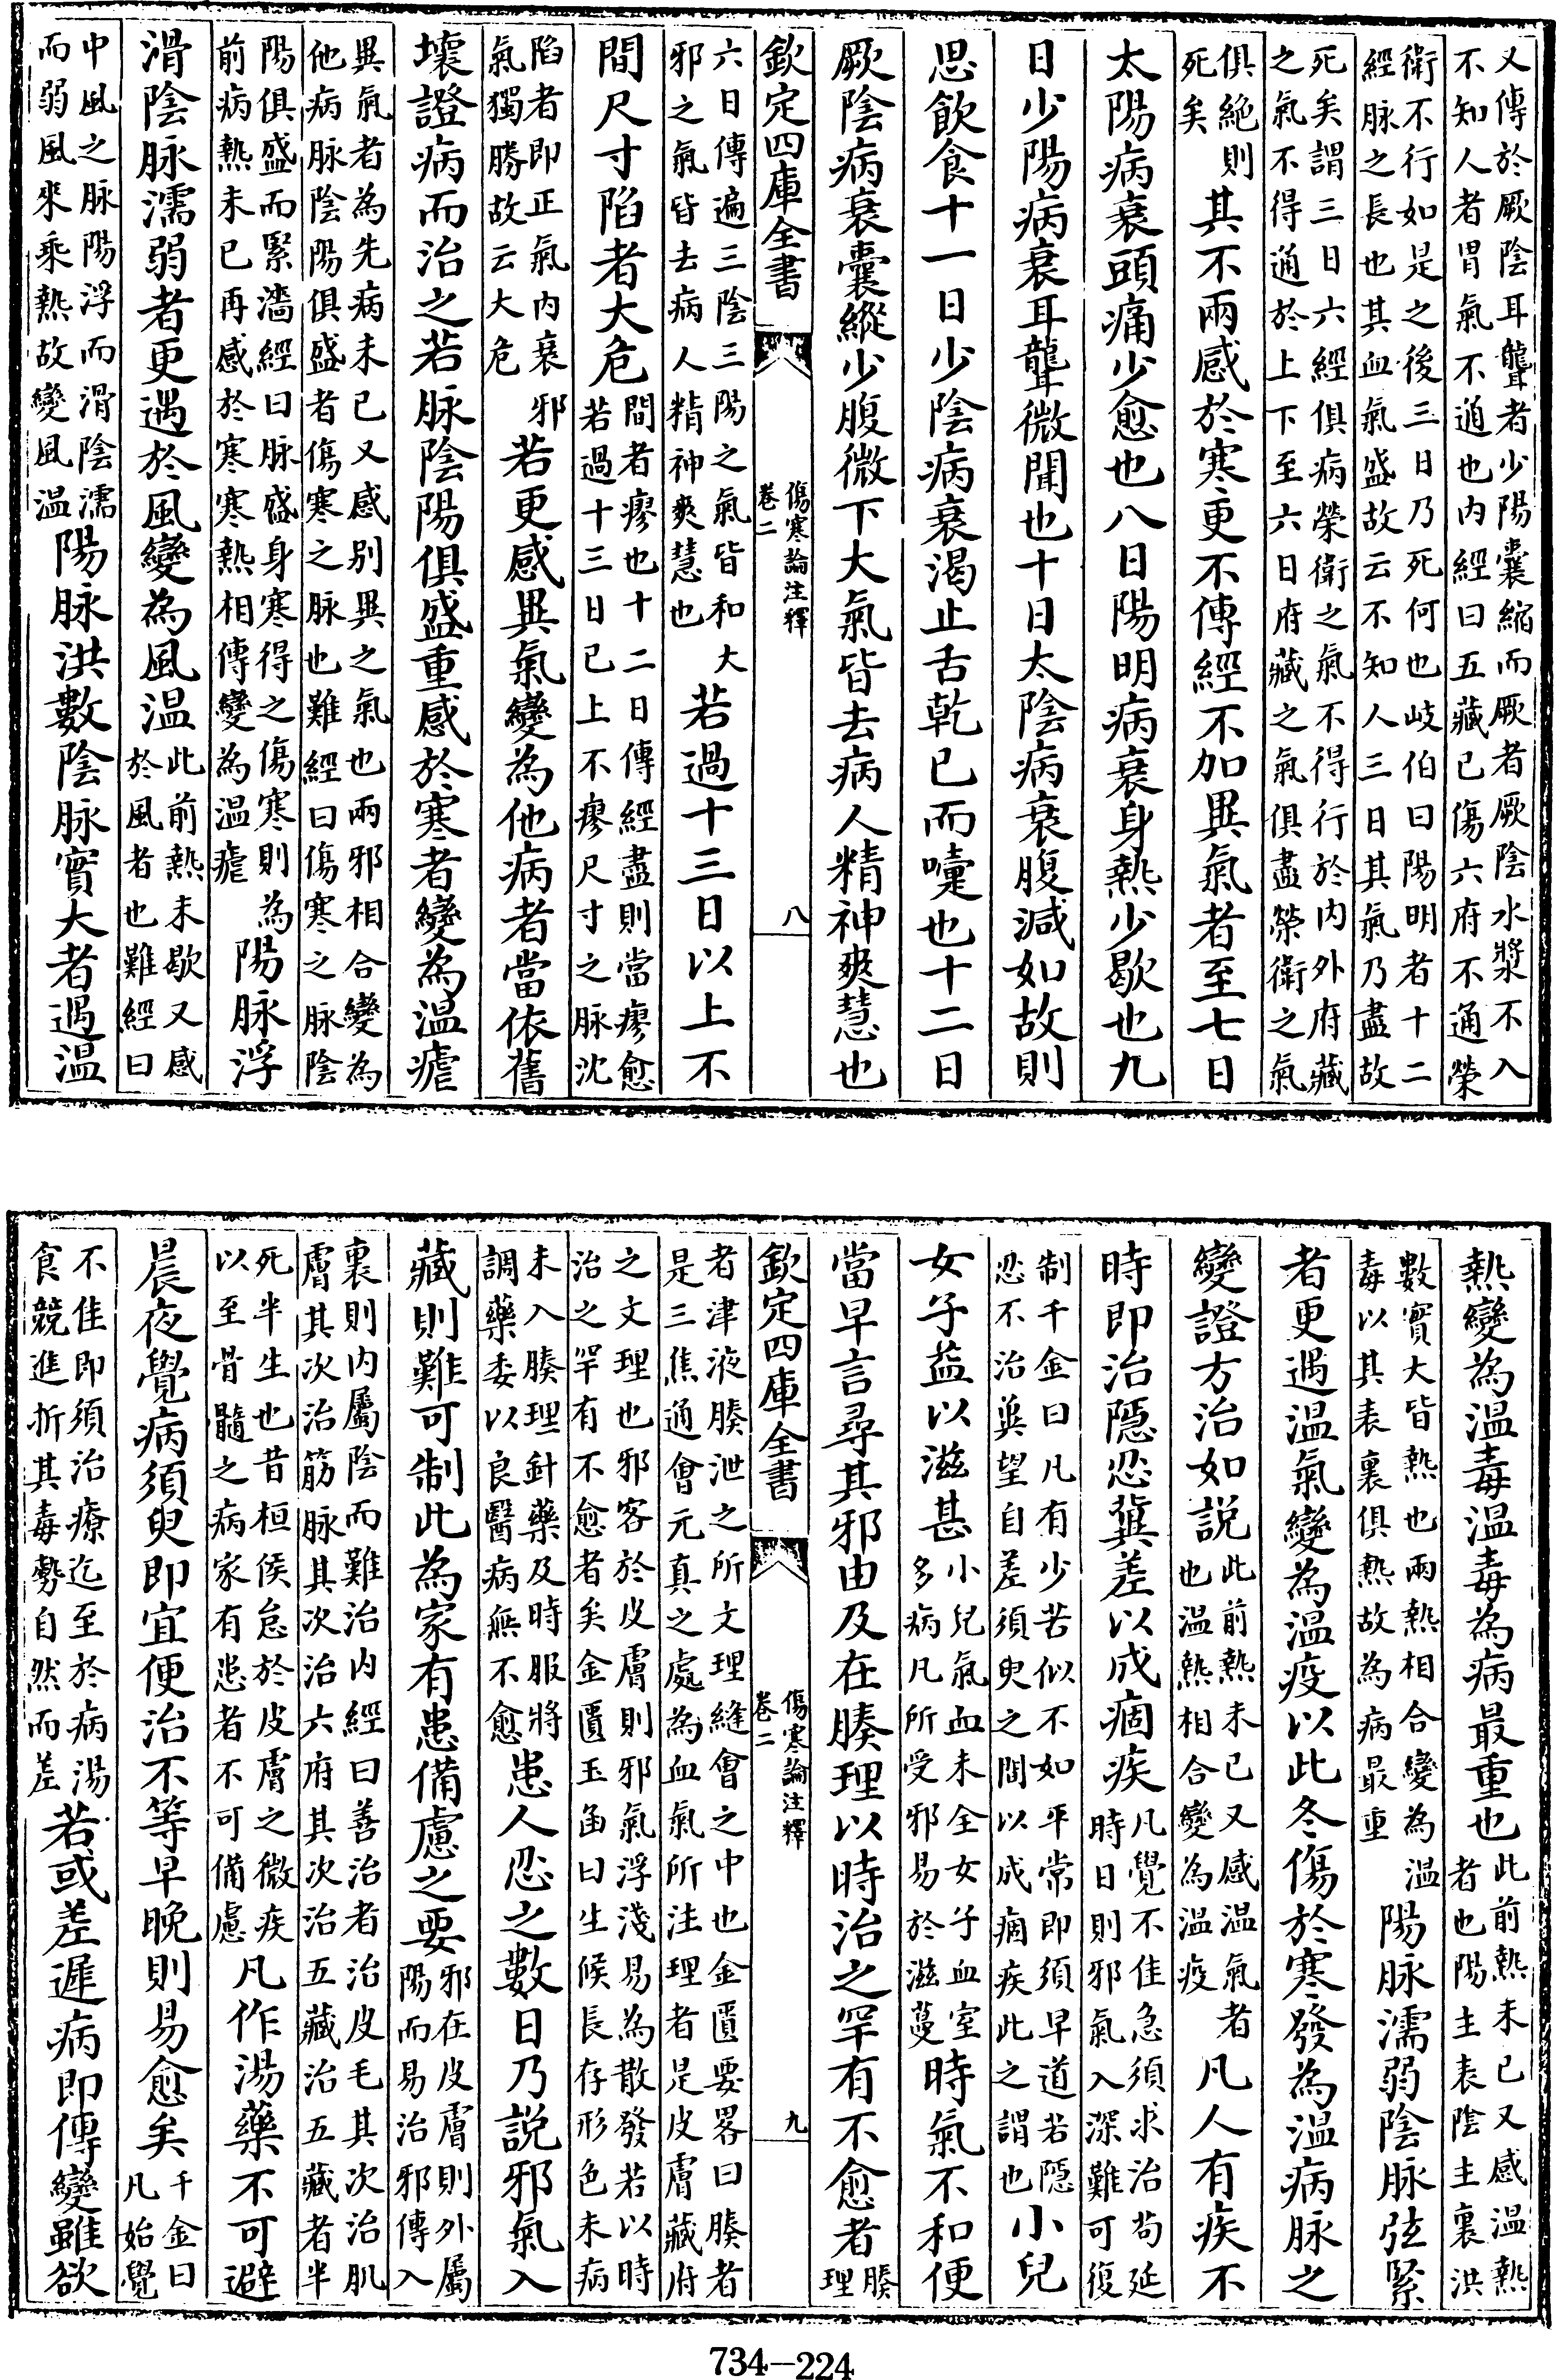 又傳於厥陰耳聾者少陽囊縮而厥者厥陰水漿不入
不知人者胃氣不通也内經曰五藏已傷六府不通榮
衛不行如是之後三日乃死何也岐伯曰陽明者十二
經脉之長也其血氣盛故云不知人三日其氣乃盡故
死矣謂三日六經俱病榮衛之氣不得行於内外府藏
之氣不得通於上下至六日府藏之氣俱盡榮衛之氣
俱絶則死矣其不兩感於寒更不傳經不加異氣者至七日
太陽病衰頭痛少愈也八日陽明病衰身熱少歇也九
日少陽病衰耳聾微聞也十日太陰病衰腹減如故則
思飲食十一日少陰病衰渴止舌乾已而嚏也十二日
厥陰病衰囊縱少腹微下大氣皆去病人精神爽慧也
欽定四庫全書 傷寒論注釋 卷二 八
六日傳遍三陰三陽之氣皆和大邪之氣皆去病人精神爽慧也若過十三日以上不
間尺寸陷者大危間者瘳也十二日傳經盡則當瘳愈若過十三日已上不瘳尺寸之脉沈
陷者即正氣内衰邪氣獨勝故云大危若更感異氣變為他病者當依舊
壞證病而治之若脉陰陽俱盛重感於寒者變為温瘧
異氣者為先病未已又感别異之氣也兩邪相合變為
他病脉陰陽俱盛者傷寒之脉也難經曰傷寒之脉陰
陽俱盛而緊濇經曰脉盛身寒得之傷寒則為前病熱未已再感於寒寒熱相傳變為温瘧陽脉浮
滑陰脉濡弱者更遇於風變為風温此前熱未歇又感於風者也難經曰
中風之脉陽浮而滑陰濡而弱風來乘熱故變風温陽脉洪數陰脉實大者遇温
熱變為温毒温毒為病最重也此前熱未已又感温熱者也陽主表陰主裏洪
數實大皆熱也兩熱相合變為温毒以其表裏俱熱故為病最重陽脉濡弱陰脉弦緊
者更遇温氣變為温疫以此冬傷於寒發為温病脉之
變證方治如説此前熱未已又感温氣者也温熱相合變為温疫凡人有疾不
時即治隱忍冀差以成痼疾凡覺不佳急須求治苟延時日則邪氣入深難可復
制千金曰凡有少苦似不如平常即須早道若隱忍不治冀望自差須臾之間以成痼疾此之謂也小兒
女子益以滋甚小兒氣血未全女子血室多病凡所受邪易於滋蔓時氣不和便
當早言尋其邪由及在腠理以時治之罕有不愈者腠理
欽定四庫全書 傷寒論注釋 卷二 九
者津液腠泄之所文理縫會之中也金匱要畧曰腠者
是三焦通會元真之處為血氣所注理者是皮膚藏府
之文理也邪客於皮膚則邪氣浮淺易為散發若以時
治之罕有不愈者矣金匱玉函曰生候長存形色未病
未入腠理針藥及時服將調藥委以良醫病無不愈患人忍之數日乃説邪氣入
藏則難可制此為家有患備慮之要邪在皮膚則外屬陽而易治邪傳入
裏則内屬陰而難治内經曰善治者治皮毛其次治肌
膚其次治筋脉其次治六府其次治五藏治五藏者半
死半生也昔桓侯怠於皮膚之微疾以至骨髓之病家有患者不可備慮凡作湯藥不可避
晨夜覺病須臾即宜便治不等早晚則易愈矣千金曰凡始覺
不佳即須治療迄至於病湯食競進折其毒勢自然而差若或差遲病即傳變雖欲
734—224